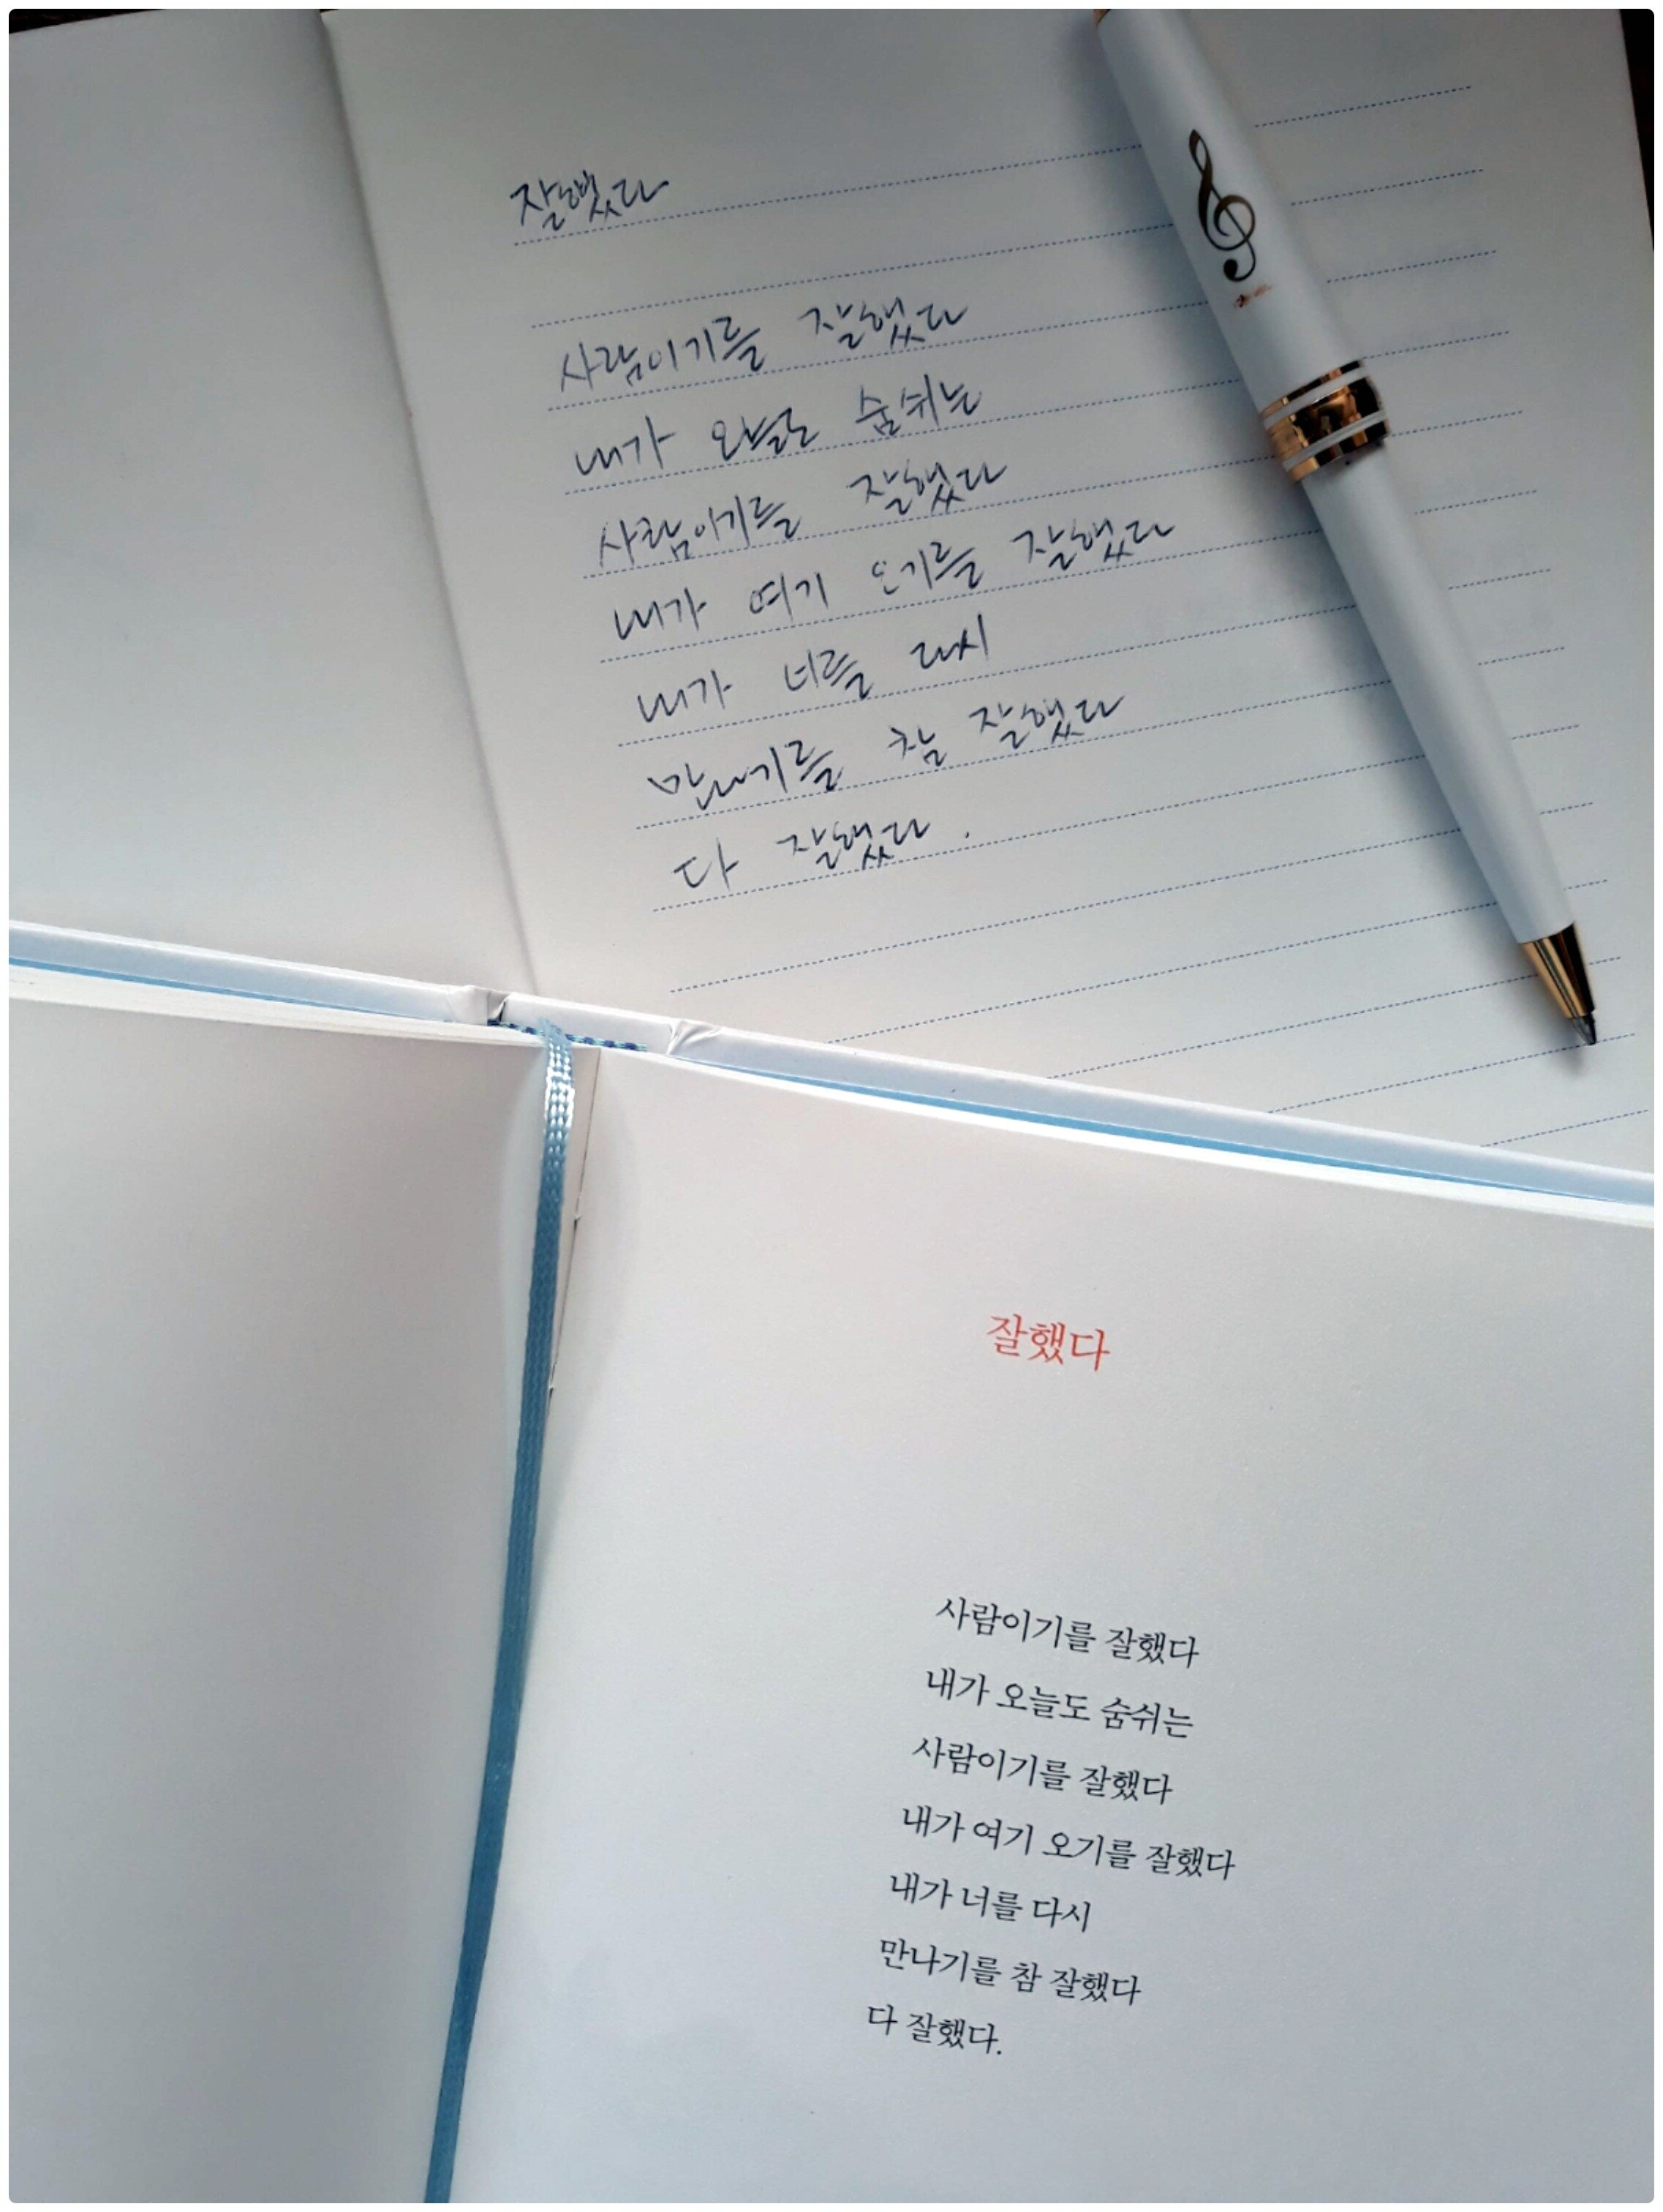 잘했다
사람이기를 잘했다
내가 오늘도 숨쉬는
사람이기를 잘했다
내가 여기 오기를 잘했다
내가 너를 다시
만나기를 참 잘했다
다 잘했다.
잘했다
사람이기를 잘했다
내가 오늘도 숨쉬는
사람이기를 잘했다
내가 여기 오기를 잘했다
내가 너를 다시
만나기를 참 잘했다
다 잘했다.